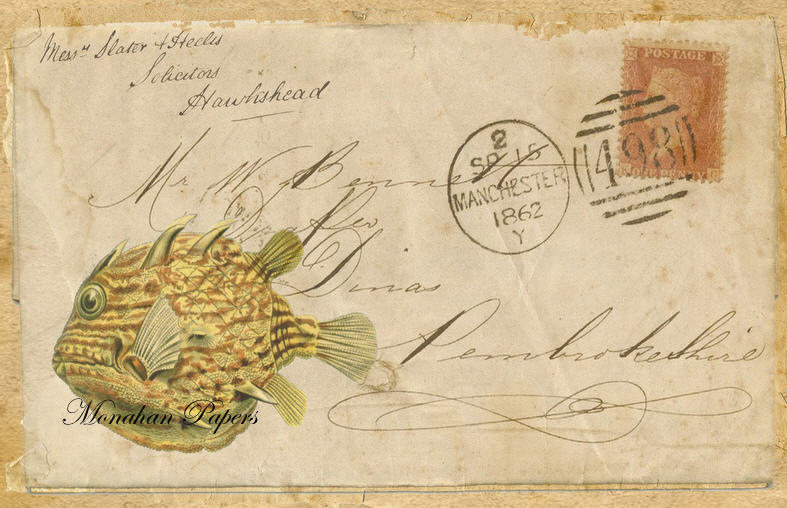 Messrs Slater & Heelis
Solicitors
Hawkshead
POSTAGE
ONE PENNY
498
2
SP 15
MANCHESTER
1862
Y
Mr W Bennett
Dinas
Pembrokeshire
Monahan Papers